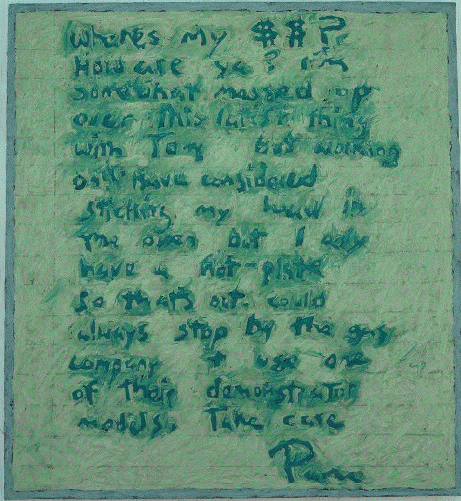 Where's my $$?
How are ya? i'm
somewhat messed up
over this latest thing
with Tom but working
out. Have considered
sticking my head in
the oven but I only
have a hot-plate
so that's out. could
always stop by the gas
company + use one
of their demonstrator
models. Take care